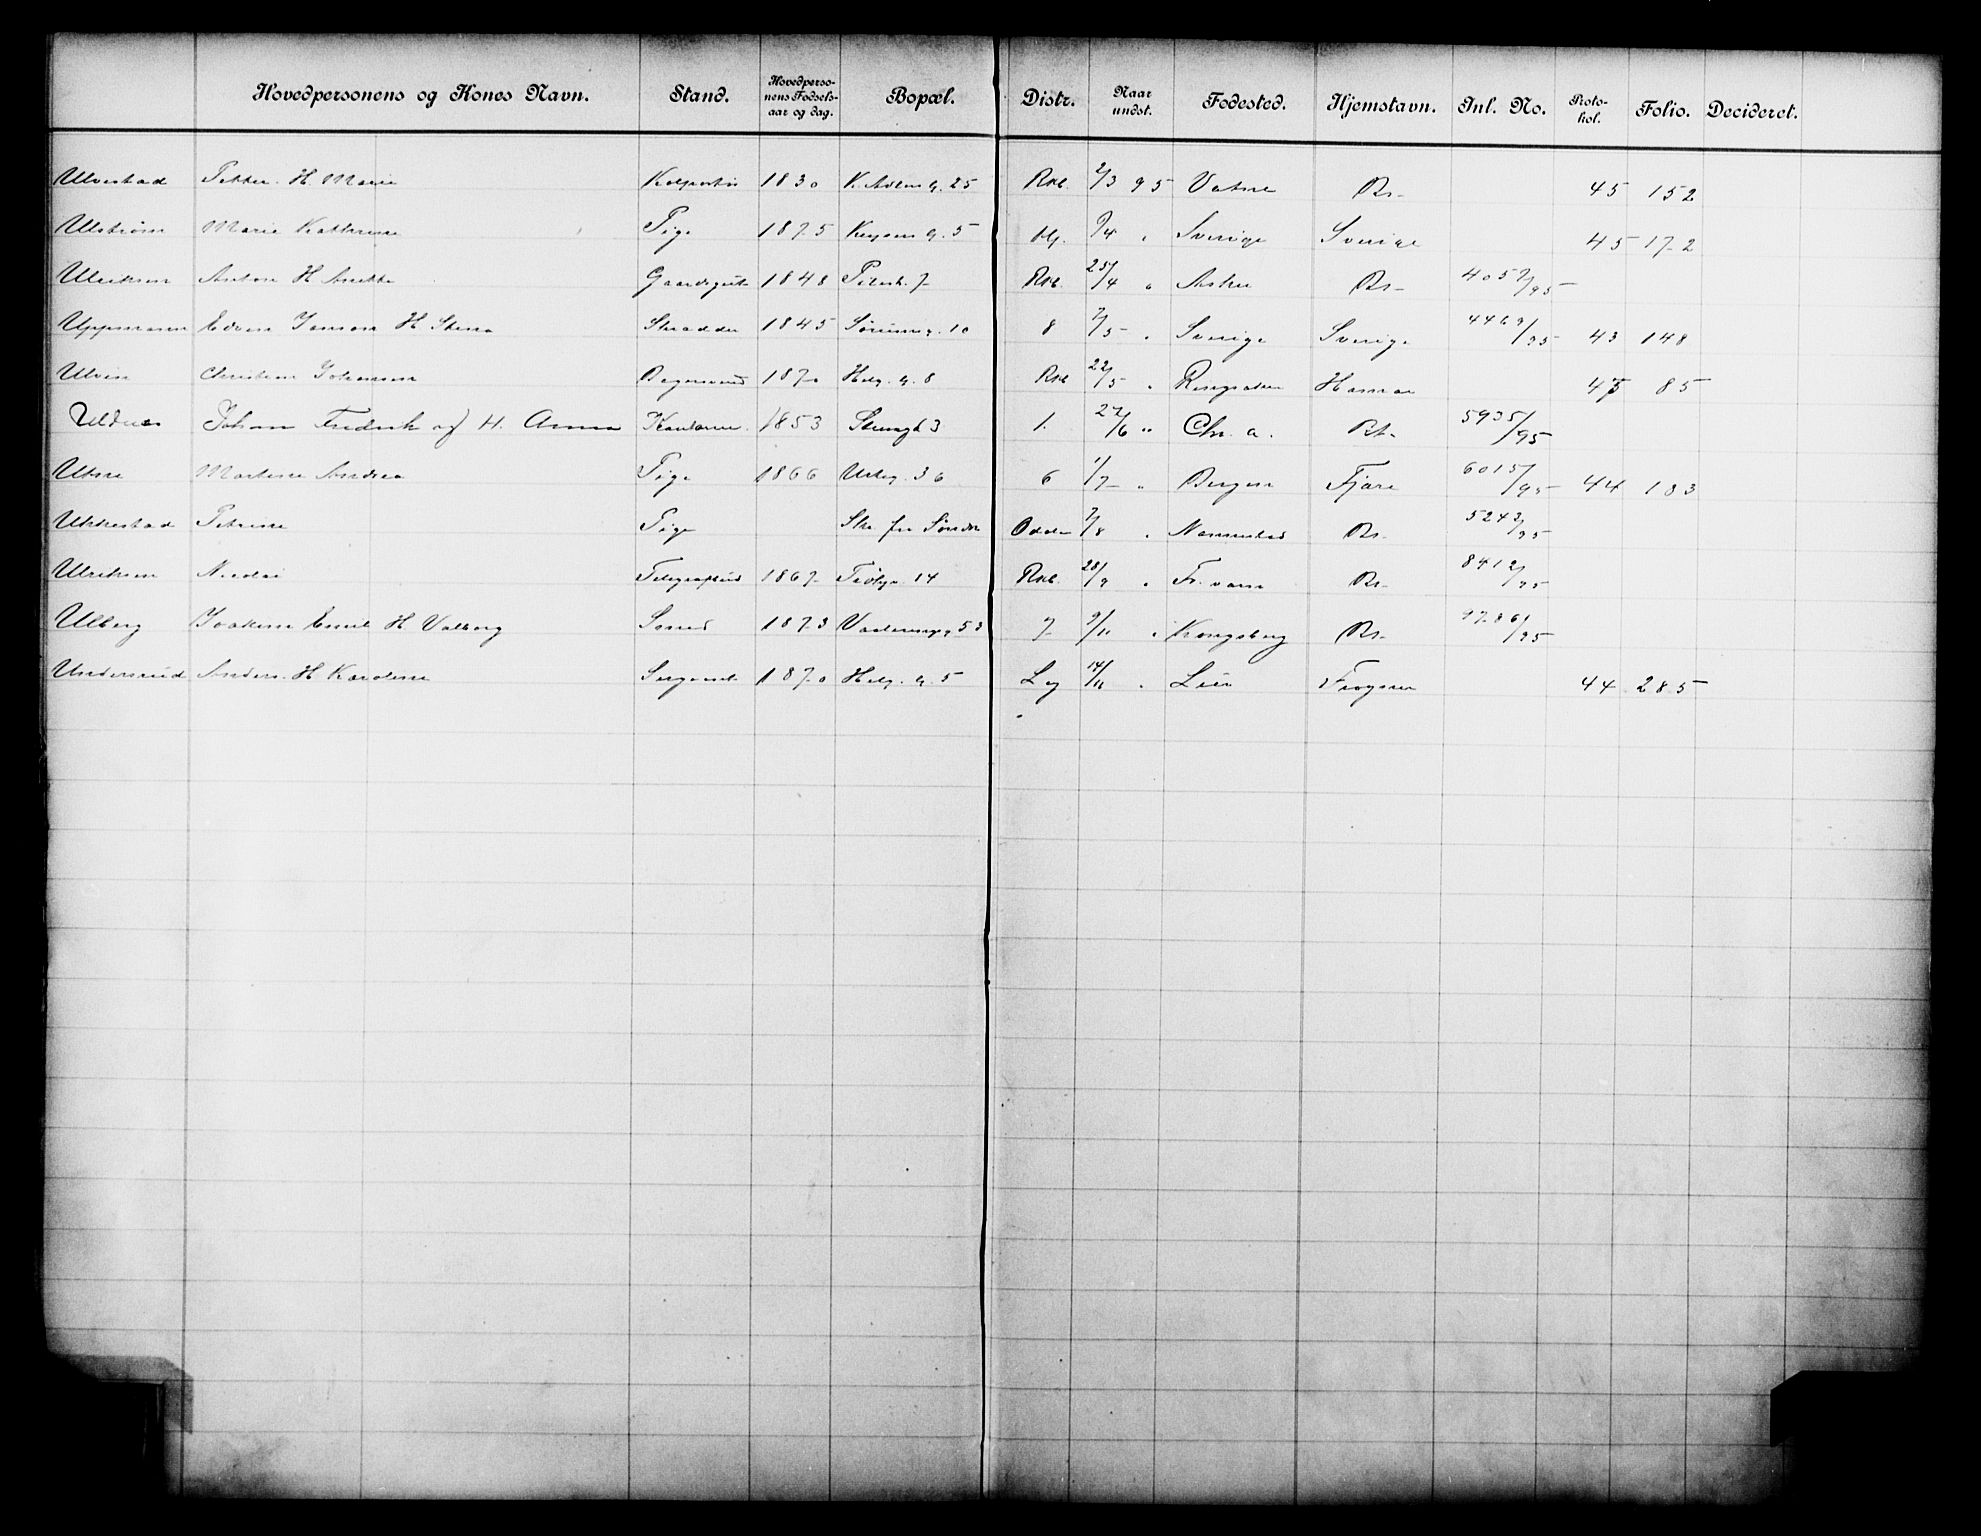 Hovedpersonens og Kones Navn. Stand. Hovedpersonens Fødselsaar og dag. Bopæl. Distr. Naar undst. Fødested. Hjemstavn. Inl. No. Protokol. Folio. Decideret.
Ulvestad Petter. H. Marie Kolportør 1830 K. Adlers g. 25 Rkl. 2/3 95 Vatne Bs- 45 152
Ulstrøm Marie Kathrine Pige 1875 Keysers g. 5 Hj. 9/4 " Sverige Sverige 45 172
Ulriksen Anton H Anette Gaardsgut 1848 Pilestr. 7 Rkl. 25/4 " Asker Bs- 4057/95
Uppmann Edvin Janson H Stina Skrædder 1845 Sørumsg. 10 8 7/5 " Sverige Sverige 4469/95 43 148
Ulven Christian Johansen Bagersvend 1870 Helg. g. 8 Rkl 22/5 " Ringsaker Hamar 45 85
Johan Fredrik og H. Anna 1853 3 1. 27/6 " Chr. a. Bs- 5935/95
Utne Martine Andrea Pige 1866 Urteg. 36 6 1/7 " Bergen Fjære 6015/95 44 183
Ukkestad Petrine Pige Ske fru 7/8 " Nannestad Bs- 5242/95
Ulriksen Nicolai Telegrafbud 1867 14 Rkl. 28/9 " Fr. værn Bs- 8412/95
Ulberg Joakim Emil H Valborg Smed 1873 53 7 9/11 " Kongsberg Bs- 9786/95
Undersrud Anders. H Karoline Sergeant 1870 Helg. g. 5 Lg 14/11 " Lier Frogner 44 285